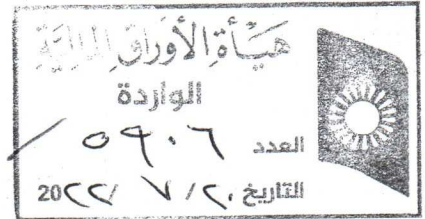 هيأة الأوراق المالية
الواردة
العدد ٥٩٠٦ /
التاريخ ٢٠ / ٧ / 20٢٢